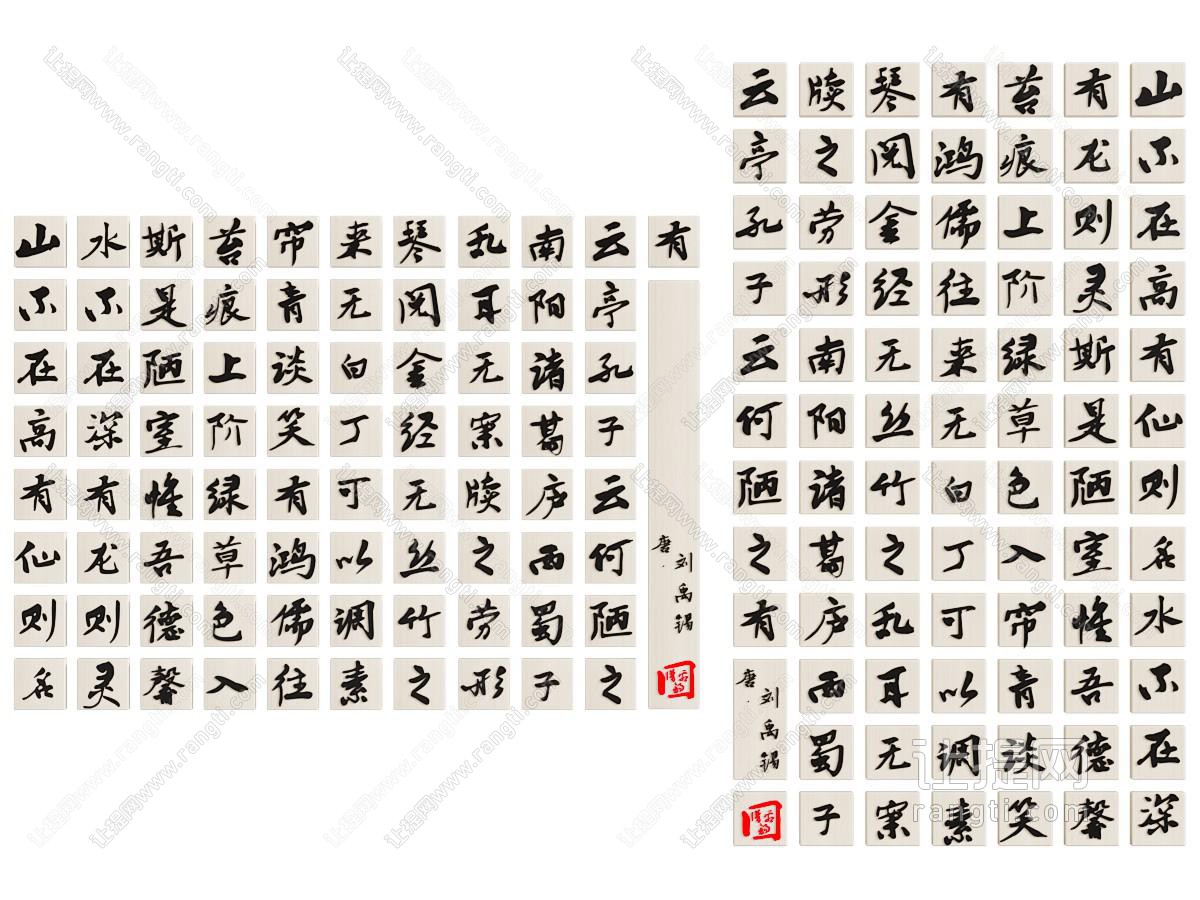 山不在高有仙则名
水不在深有龙则灵
斯是陋室惟吾德馨
苔痕上阶绿草色入
帘青谈笑有鸿儒往
来无白丁可以调素
琴阅金经无丝竹之
乱耳无案牍之劳形
南阳诸葛庐西蜀子
云亭孔子云何陋之
有
唐·
刘禹锡
山不在高有仙则名水不在深
有龙则灵斯是陋室惟吾德馨
苔痕上阶绿草色入帘青谈笑
有鸿儒往来无白丁可以调素
琴阅金经无丝竹之乱耳无案
牍之劳形南阳诸葛庐西蜀子
云亭孔子云何陋之有
唐·
刘禹锡
让提网
rangti.com
让提网www.rangti.com